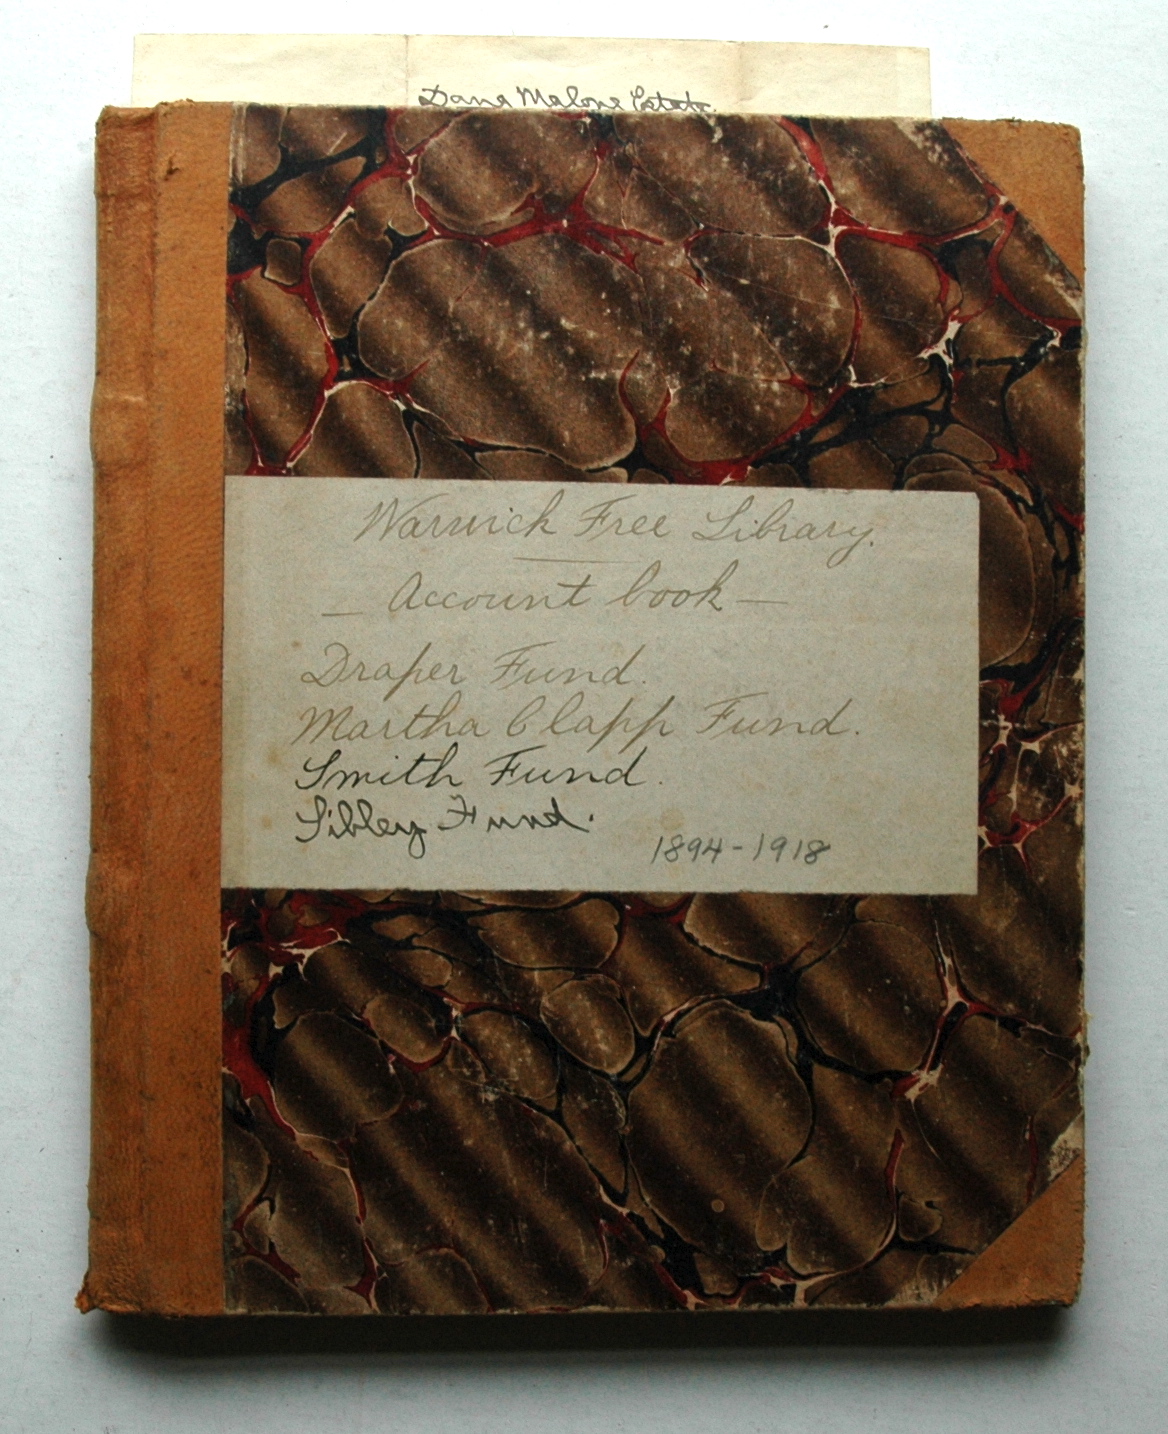 Dana Malone Estate.
Warwick Free Library.
— Account book —
Draper Fund.
Martha Clapp Fund.
Smith Fund.
Sibley Fund.
1894-1918